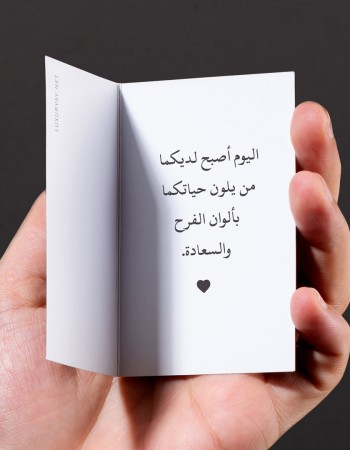 LUXURYAY.NET
اليوم أصبح لديكما
من يلون حياتكما
بألوان الفرح
والسعادة.